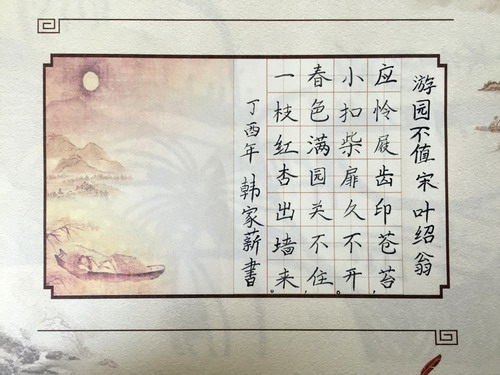 游园不值 宋 叶绍翁
应怜屐齿印苍苔，
小扣柴扉久不开。
春色满园关不住，
一枝红杏出墙来。
丁酉年 韩家薪書